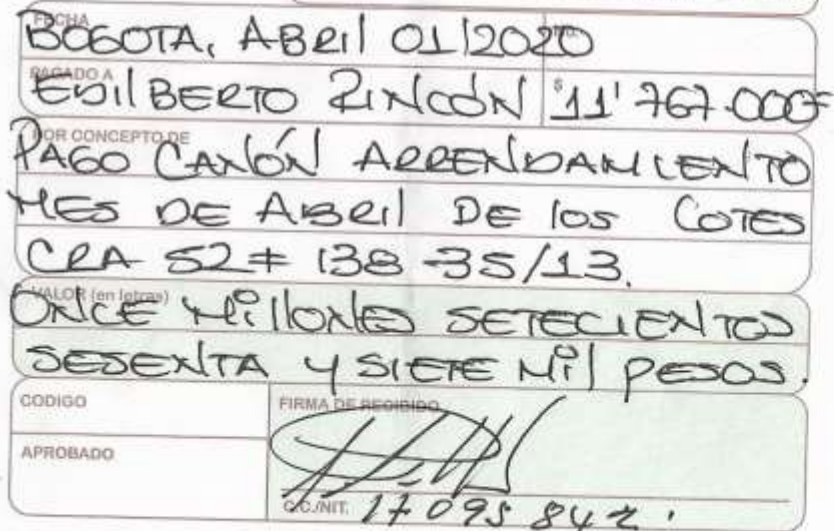 FECHA
BOGOTA, ABRil 01/2020
PAGADO A
EDilBERTO RINCÓN $11'767.000=
POR CONCEPTO DE
PAGO CANÓN ARRENDAMIENTO
MES DE ABRil DE los COTES
CRA 52# 138-35/13.
VALOR (en letras)
ONCE MillONES SETECIENTOS
SESENTA Y SIETE Mil PESOS.
CODIGO
FIRMA DE RECIBIDO
APROBADO
C.C./NIT. 17095842.